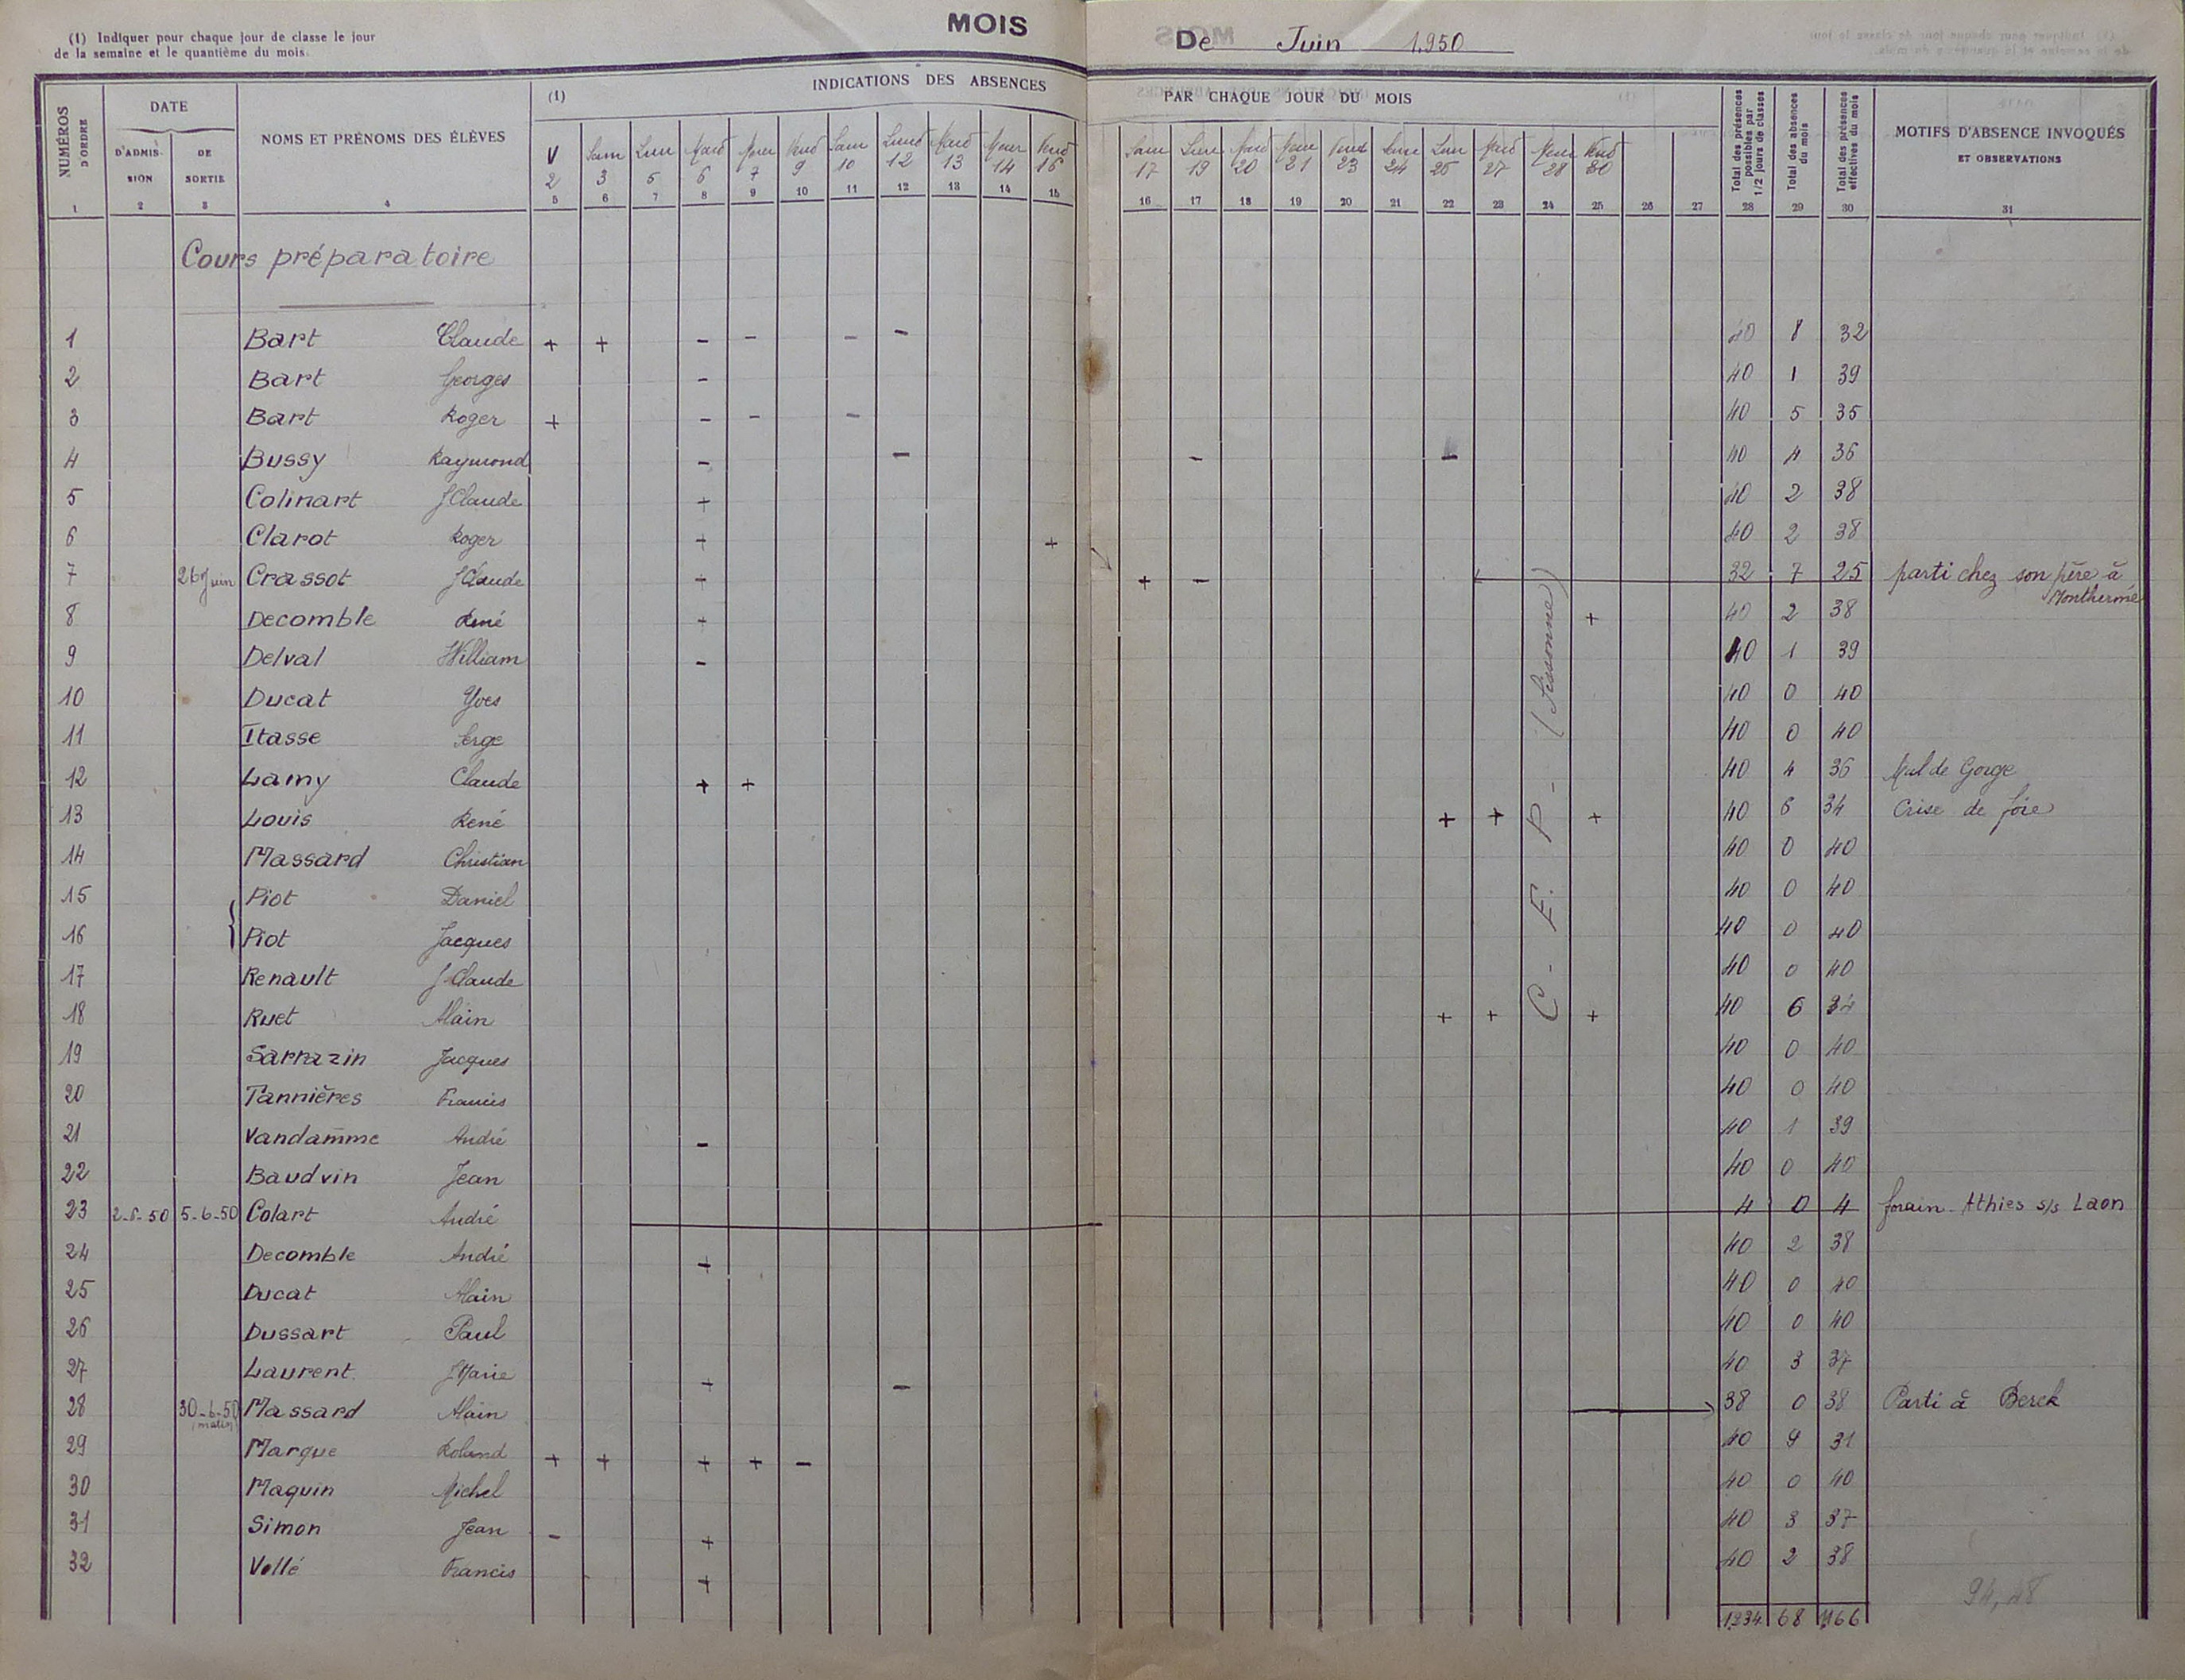 (1) Indiquer pour chaque jour de classe le jour
de la semaine et le quantième du mois.
MOIS De Juin 1950
NUMÉROS D'ORDRE
DATE
D'ADMISSION
DE SORTIE
NOMS ET PRÉNOMS DES ÉLÈVES
(1) INDICATIONS DES ABSENCES PAR CHAQUE JOUR DU MOIS
Total des présences possibles par 1/2 jours de classes
Total des absences du mois
Total des présences effectives du mois
MOTIFS D'ABSENCE INVOQUÉS
ET OBSERVATIONS
V Sam Lun Mard Mer Vend Sam Lund Mard Mer Vend Sam Lun Mard Mer Vend Sam Lun Mard Mer Vend
2 3 5 6 7 9 10 12 13 14 16 17 19 20 21 23 24 26 27 28 30
1 2 3 4 5 6 7 8 9 10 11 12 13 14 15 16 17 18 19 20 21 22 23 24 25 26 27 28 29 30 31
Cours préparatoire
1 Bart Claude + + - - - - 40 8 32
2 Bart Georges - 40 1 39
3 Bart Roger + - - - 40 5 35
4 Bussy Raymond - - - - 40 4 36
5 Colinart J Claude + 40 2 38
6 Clarot Roger + + 40 2 38
7 26 Juin Crassot J Claude + + - 32 7 25 parti chez son père à
Monthermé
8 Decomble René + + 40 2 38
9 Delval William - 40 1 39
10 Ducat Yves 40 0 40
11 Itasse Serge 40 0 40
12 Lamy Claude + + 40 4 36 Mal de Gorge
13 Louis René + + + 40 6 34 Crise de foie
14 Massard Christian 40 0 40
15 Piot Daniel 40 0 40
16 Piot Jacques 40 0 40
17 Renault J Claude 40 0 40
18 Ruet Alain + + + 40 6 34
19 Sarrazin Jacques 40 0 40
20 Tannières Francis 40 0 40
21 Vandamme André - 40 1 39
22 Baudvin Jean 40 0 40
23 2-6-50 5-6-50 Colart André 4 0 4 forain - Athies s/s Laon
24 Decomble André + 40 2 38
25 Ducat Alain 40 0 40
26 Dussart Paul 40 0 40
27 Laurent J Marie + - 40 3 37
28 30-6-50 Massard Alain 38 0 38 Parti à Berck
(matin)
29 Marque Roland + + + + - 40 9 31
30 Maquin Michel 40 0 40
31 Simon Jean - + 40 3 37
32 Vollé Francis + 40 2 38
1234 68 1166
94,48
C - E. P - (Sissonne)